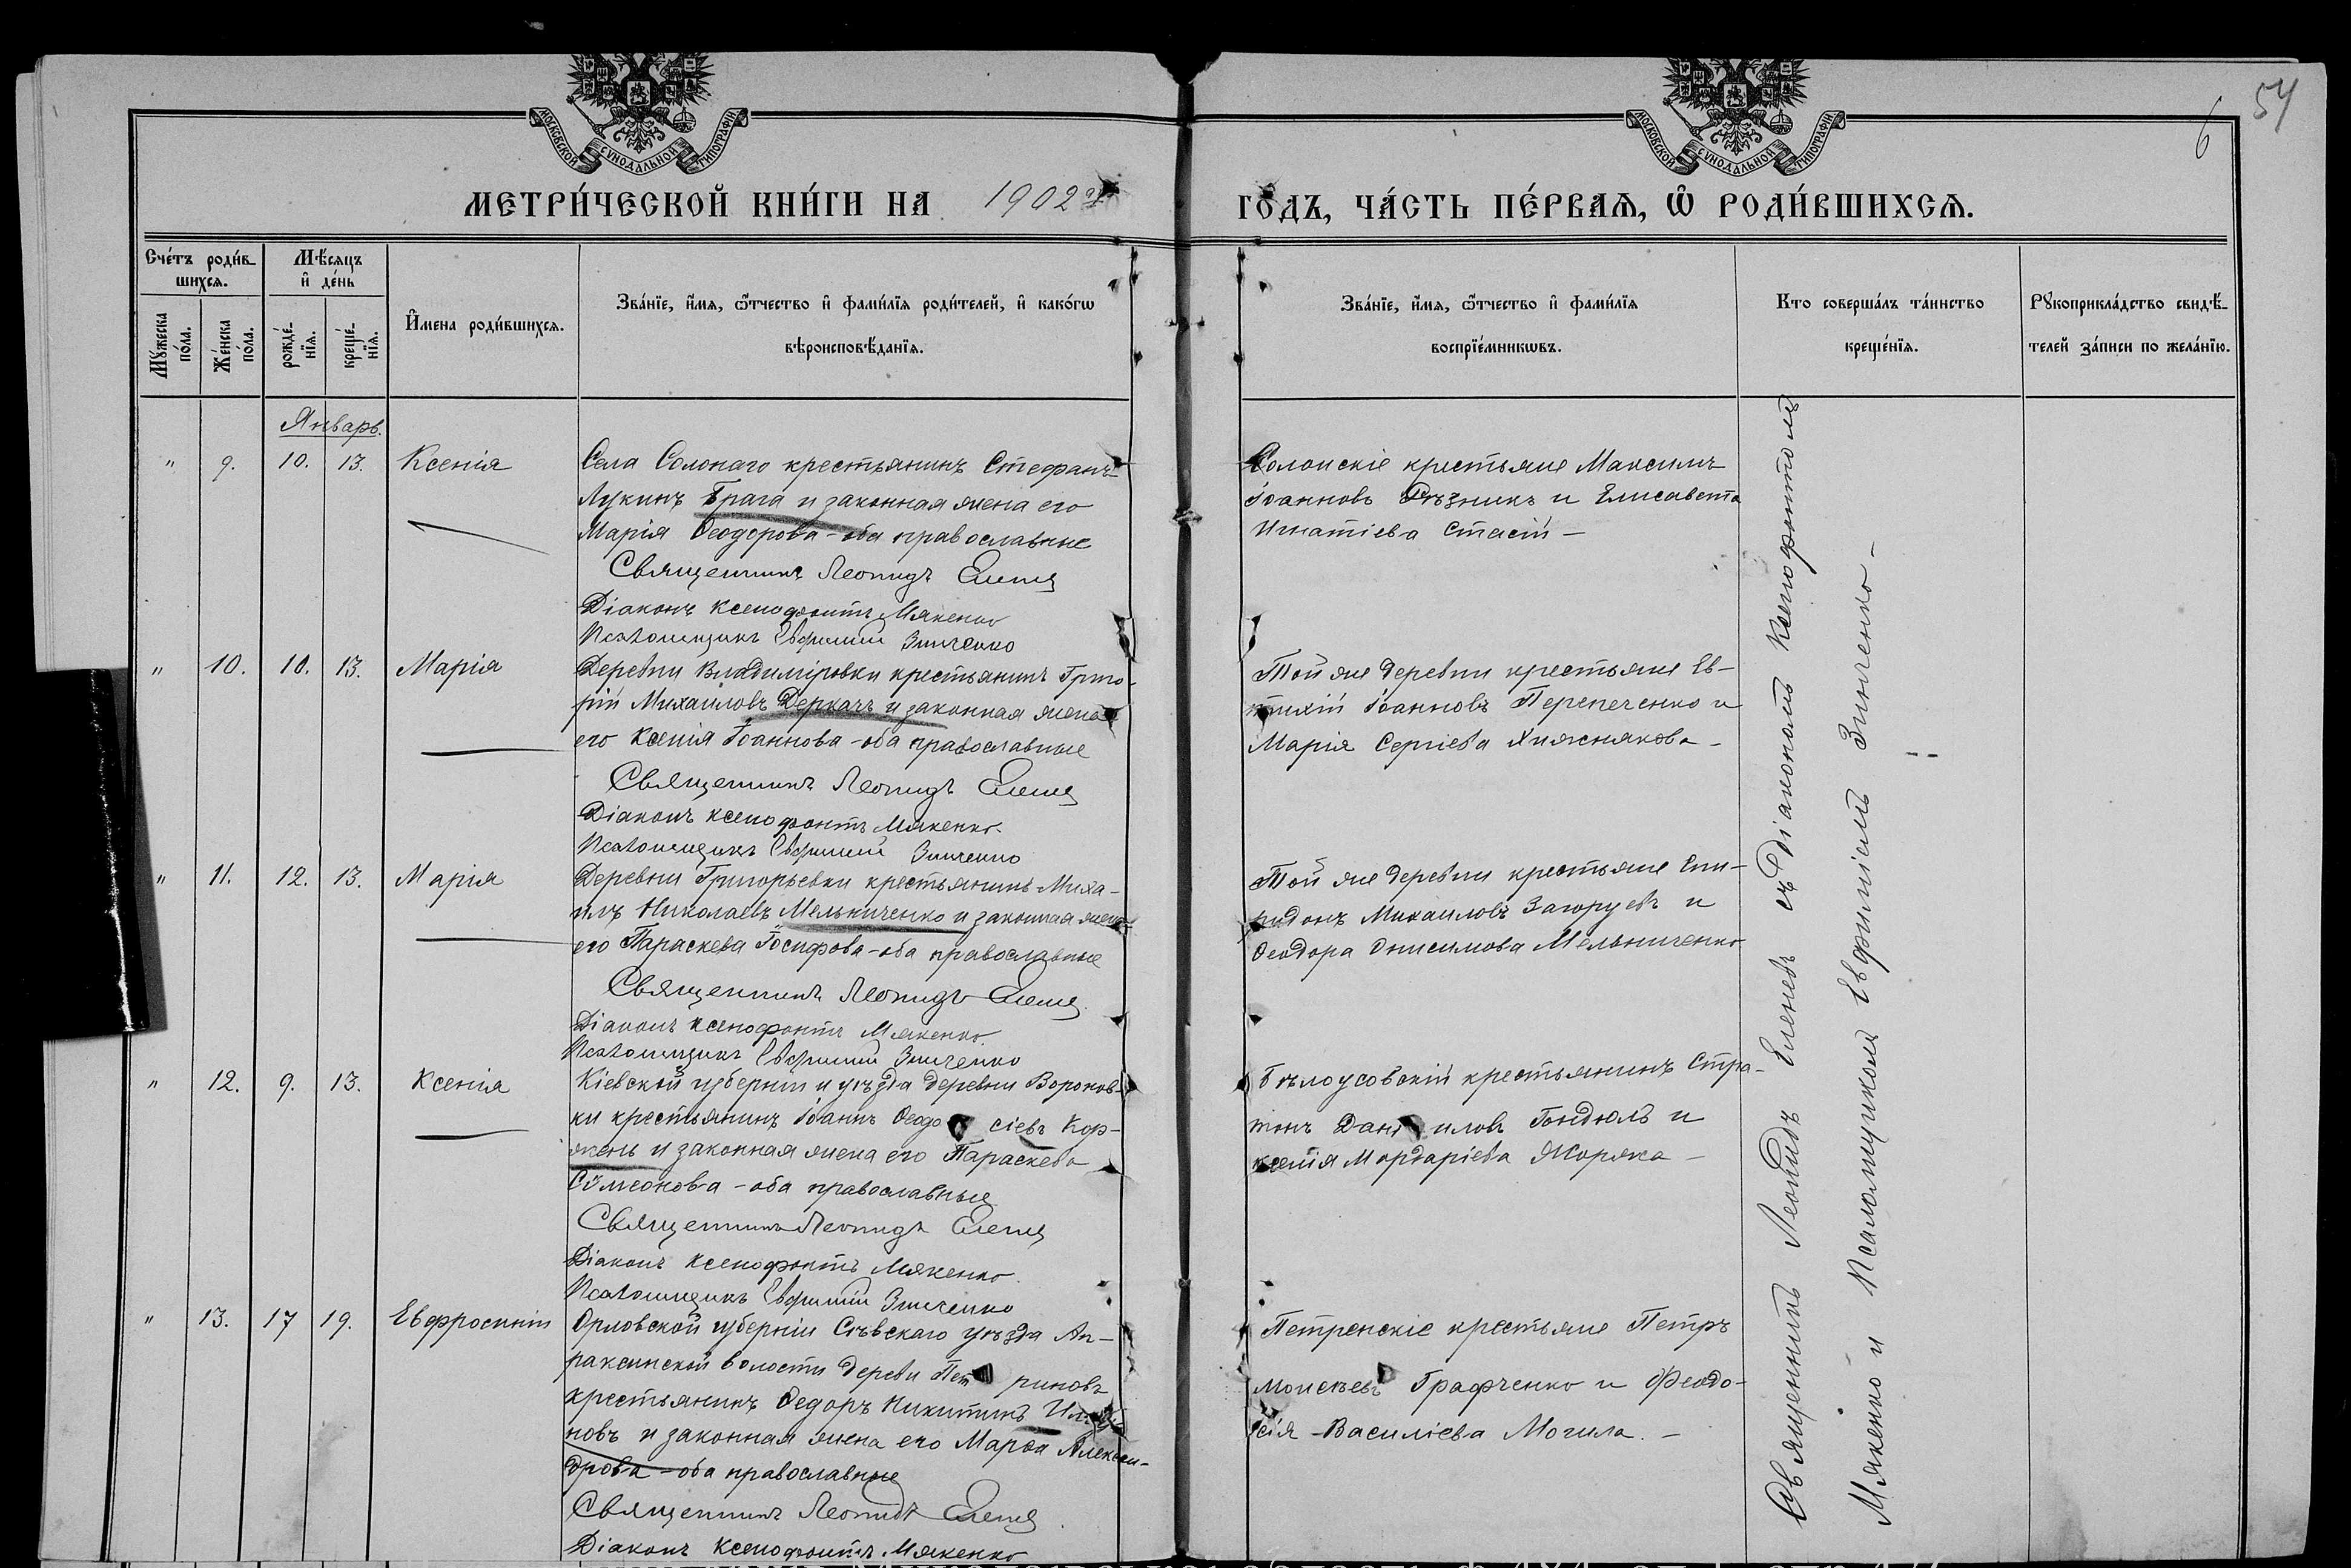 54
6
МОСКОВСКОЙ СѴНОДАЛЬНОЙ ТИПОГРАФІИ
МОСКОВСКОЙ СѴНОДАЛЬНОЙ ТИПОГРАФІИ
МЕТРИ́ЧЕСКОЙ КНИ́ГИ НА 1902 г. ГО́ДЪ, ЧА́СТЬ ПЕ́РВАЯ, Ѡ РОДИ́ВШИХСЯ.
Сче́тъ роди́в-
шихся.
Мѣ́сяцъ
и де́нь
Мꙋ́жеска
по́ла.
Же́нска
по́ла.
рожде́-
нїя.
креще́-
нїя.
И҆мена роди́вшихся.
Зва́нїе, и҆́мя, ѻ҆́тчество и҆ фамилїя роди́телей, и҆ како́гѡ
вѣроисповѣ́данїя.
Зва́нїе, и҆́мя, ѻ҆́тчество и҆ фами́лїя
воспрїе́мникѡвъ.
Кто соверша́лъ та́инство
креще́нїя.
Рꙋкоприкла́дство свидѣ́-
телей за́писи по жела́нїю.
Январь.
" 9. 10. 13. Ксенія
Села Солонаго крестьянинъ Стефанъ
Лукинъ Брага и законная жена его
Марія Ѳеодорова - оба православные
Священникъ Леонидъ Еленевъ
Діаконъ Ксенофонтъ Мякенко
Псаломщикъ Евфимій Зинченко
Солонскіе крестьяне Максимъ
Іоанновъ Рѣзникъ и Елисавета
Игнатіева Стасій —
" 10. 10. 13. Марія
Деревни Владиміровки крестьянинъ Григо-
рій Михаиловъ Деркачъ и законная жена
его Ксенія Іоаннова - оба православные
Священникъ Леонидъ Еленевъ
Діаконъ Ксенофонтъ Мякенко.
Псаломщикъ Евфимій Зинченко
Той же деревни крестьяне Ев-
тихій Іоанновъ Перепеченко и
Марія Сергіева Хижнякова -
" 11. 12. 13. Марія
Деревни Григорьевки крестьянинъ Миха-
илъ Николаевъ Мельниченко и законная жена
его Параскева Іосифова - оба православные
Священникъ Леонидъ Еленевъ
Діаконъ Ксенофонтъ Мякенко.
Псаломщикъ Евфимій Зинченко
Той же деревни крестьяне Спи-
ридонъ Михаиловъ и
Ѳеодора Онисимова Мельниченко
" 12. 9. 13. Ксенія
Кіевской губерніи и уѣзда деревни Воронов-
ки крестьянинъ Іоаннъ Ѳеодосіевъ Кор-
жень и законная жена его Параскева
Сѵмеонова - оба православные
Священникъ Леонидъ Еленевъ
Діаконъ Ксенофонтъ Мякенко.
Псаломщикъ Евфимій Зинченко
Бѣлоусовскій крестьянинъ Стра-
тонъ Даніиловъ Гондюлъ и
Ксенія Мардаріева Жоряка -
" 13. 17 19. Евфросинія
Орловской губерніи Сѣвскаго уѣзда Ап-
раксинской волости деревн Петриновъ
крестьянинъ Ѳедоръ Никитинъ
новъ и законная жена его Марѳа Алексан-
дрова - оба православные
Священникъ Леонидъ Еленевъ
Діаконъ Ксенофонтъ Мякенко
Петренскіе крестьяне Петръ
Моисеевъ Графченко и Феодо-
сія Василіева Могила. -
Священникъ Леонидъ Еленевъ съ Діакономъ Ксенофонтомъ
Мякенко и Псаломщикомъ Евфиміемъ Зинченко -